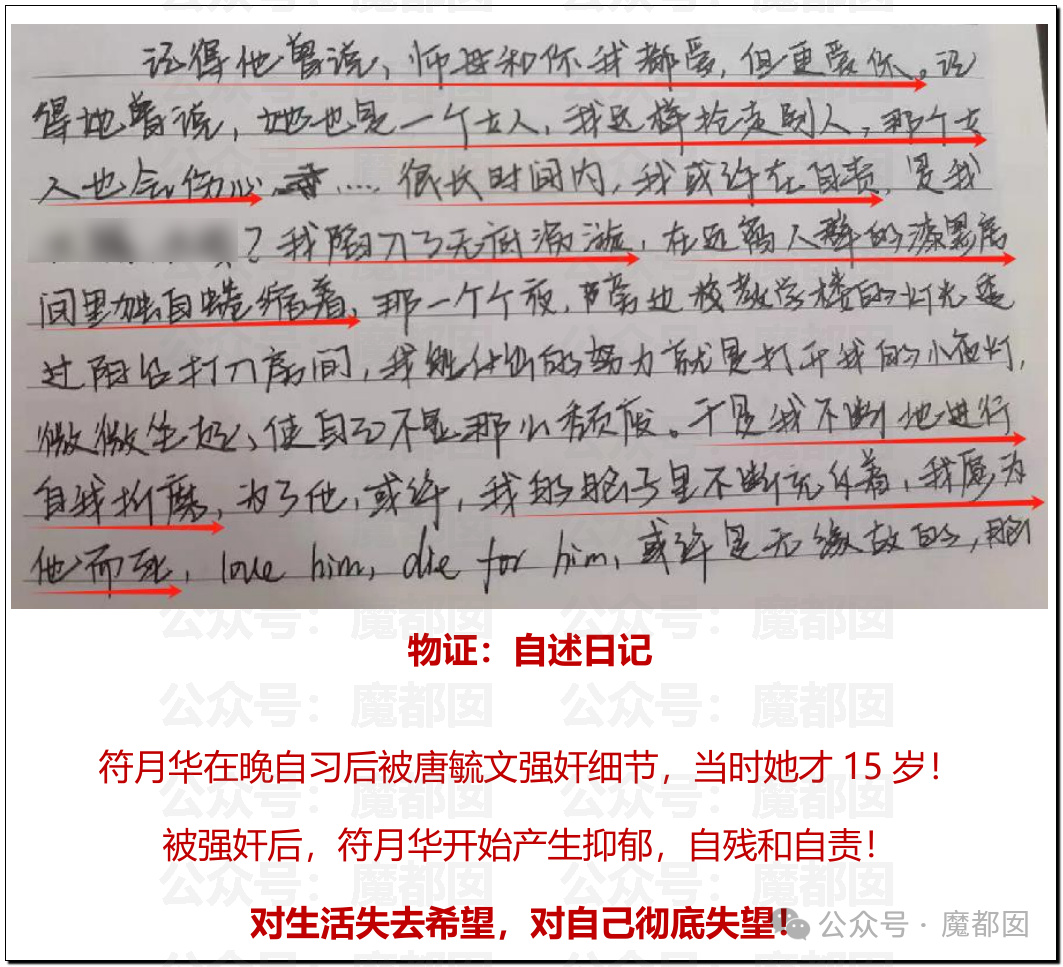 记得他曾说，师母和你我都爱，但更爱你。记
得她曾说，她也是一个女人，我这样抢走别人，那个女
人也会伤心，…… 很长时间内，我或许在自责，是我
？我陷入了无底漩涡，在远离人群的漆黑房
间里独自蜷缩着，那一个个夜，旁边校教学楼的灯光透
过阳台打入房间，我能付出的努力就是打开我的小夜灯，
微微坐起，使自己不显那么颓废。于是我不断地进行
自我折磨，为了他，或许，我的脑子里不断充斥着，我愿为
他而死，love him, die for him, 或许是无缘故的，脑
物证：自述日记
符月华在晚自习后被唐毓文强奸细节，当时她才 15 岁！
被强奸后，符月华开始产生抑郁，自残和自责！
对生活失去希望，对自己彻底失望！
公众号 · 魔都囡